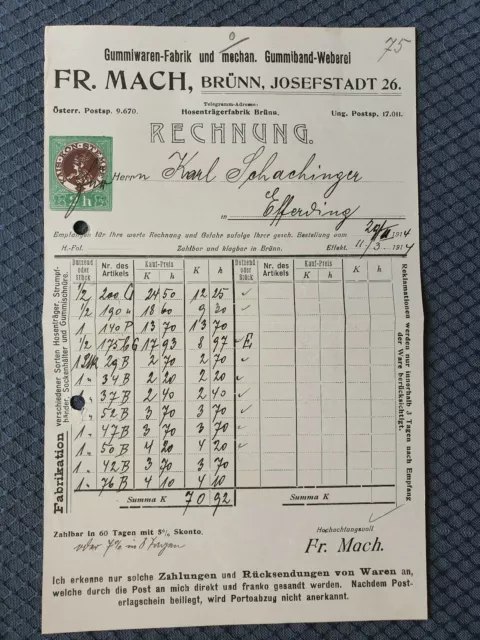 75
Gummiwaren-Fabrik und mechan. Gummiband-Weberei
FR. MACH, BRÜNN, JOSEFSTADT 26.
Österr. Postsp. 9.670.
Telegramm-Adresse:
Hosenträgerfabrik Brünn.
Ung. Postsp. 17.011.
RECHNUNG.
h
Herrn Karl Schachinger
in Efferding
Empfangen für Ihre werte Rechnung und Gefahr zufolge Ihrer gesch. Bestellung vom 29/II 1914
H.-Fol. Zahlbar und klagbar in Brünn. Effekt. 11/3 1914
Dutzend oder Stück Nr. des Artikels Kauf-Preis K h K h Dutzend oder Stück Nr. des Artikels Kauf-Preis K h K h
1/2 200 G 24 50 12 25
1/2 190 18 60 9 30
1 140 P 13 70 13 70
1/2 175 G 17 93 8 97 E
1 29 B 2 70 2 70
1 " 34 B 2 20 2 20
1 " 37 B 2 40 2 40
1 " 52 B 3 70 3 70
1 " 47 B 3 70 3 70
1 " 50 B 4 20 4 20
1 " 42 B 3 70 3 70
1 " 76 B 4 10 4 10
Summa K 70 92 Summa K
Fabrikation verschiedener Sorten Hosenträger, Strumpfbänder, Sockenhälter und Gummischnüre.
Reklamationen werden nur innerhalb 3 Tagen nach Empfang der Ware berücksichtigt.
Zahlbar in 60 Tagen mit 3% Skonto.
oder 7% in 8 Tagen
Hochachtungsvoll
Fr. Mach.
Ich erkenne nur solche Zahlungen und Rücksendungen von Waren an,
welche durch die Post an mich direkt und franko gesandt werden. Nachdem Post-
erlagschein beiliegt, wird Portoabzug nicht anerkannt.